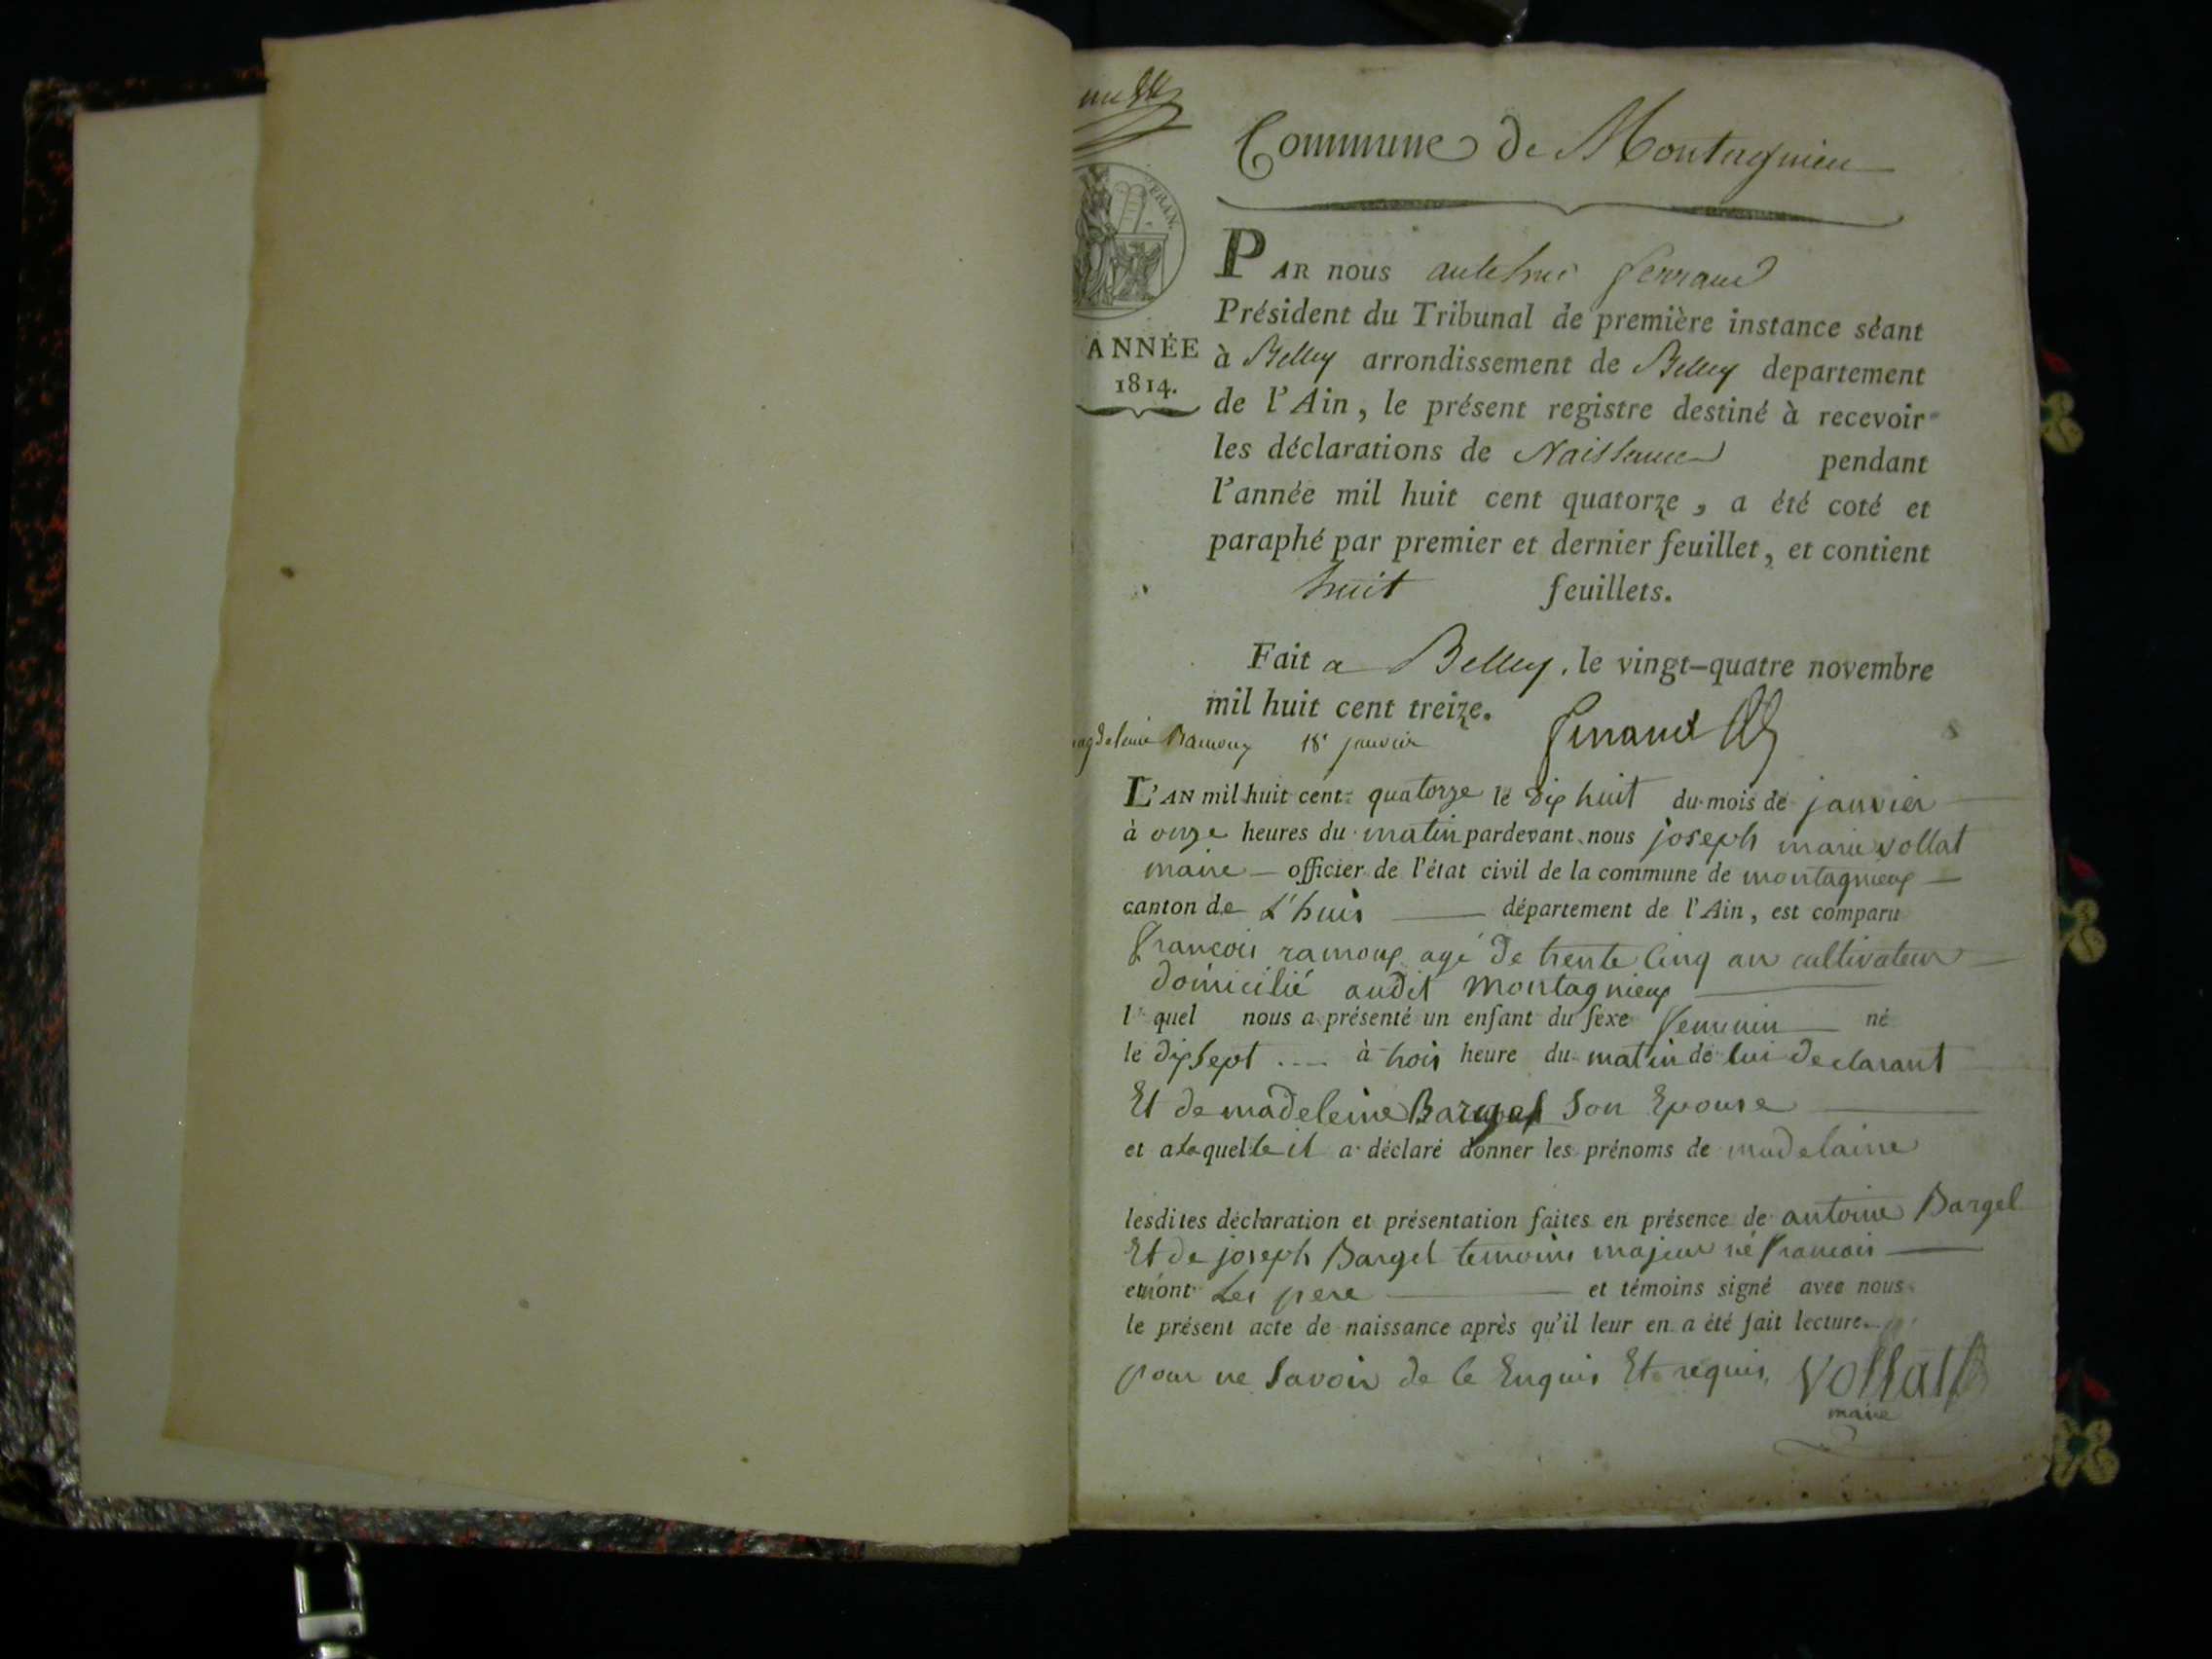 Commune de Montagnieu
FRAN.
PAR nous anthelme ferrand
Président du Tribunal de première instance séant
ANNÉE
1814.
à Belley arrondissement de Belley departement
de l'Ain, le présent registre destiné à recevoir
les déclarations de Naissance pendant
l'année mil huit cent quatorze, a été coté et
paraphé par premier et dernier feuillet, et contient
huit feuillets.
Fait a Belley, le vingt-quatre novembre
mil huit cent treize.
ferrand
agdeleine Ramoux 18 janvier
L'AN mil huit cent quatorze le dix huit du mois de janvier
à onze heures du matin pardevant nous joseph marie vollat
maire officier de l'état civil de la commune de montagnieux
canton de L'huis département de l'Ain, est comparu
francois ramoux agé de trente cinq an cultivateur
domicilié audit Montagnieux
l quel nous a présenté un enfant du sexe feminin né
le dixsept à trois heure du matin de lui declarant
Et de madeleine Bargel Son Epouse
et alaquelle il a déclaré donner les prénoms de madelaine
lesdites déclaration et présentation faites en présence de antoine Bargel
Et de joseph Bargel temoins majeur né francois
et n'ont Les pere et témoins signé avec nous
le présent acte de naissance après qu'il leur en a été fait lecture.
pour ne Savoir de ce Enquis Et requis, Vollat
maire